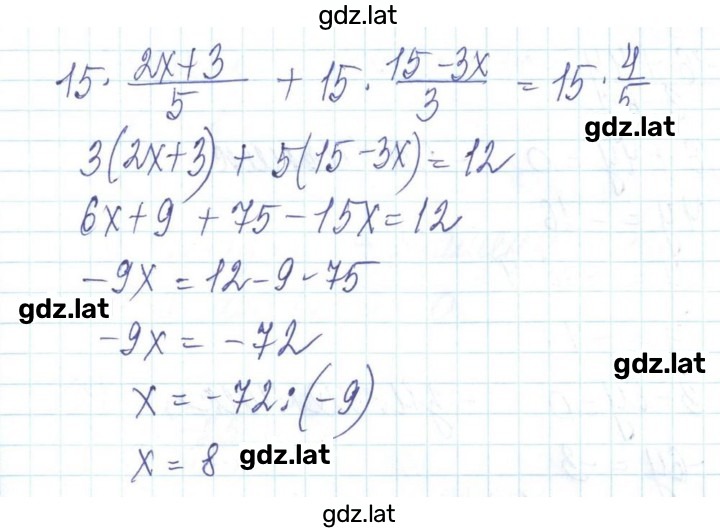 gdz.lat
15 · (2x+3)/5 + 15 · (15-3x)/3 = 15 · 4/5
gdz.lat
3(2x+3) + 5(15-3x) = 12
6x+9 + 75-15x=12
-9x = 12-9-75
gdz.lat
-9x = -72
gdz.lat
x = -72:(-9)
x = 8
gdz.lat
gdz.lat